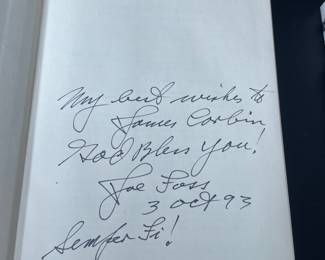 My best wishes to
James Corbin
God Bless You!
Joe Foss
3 Oct 93
Semper Fi!